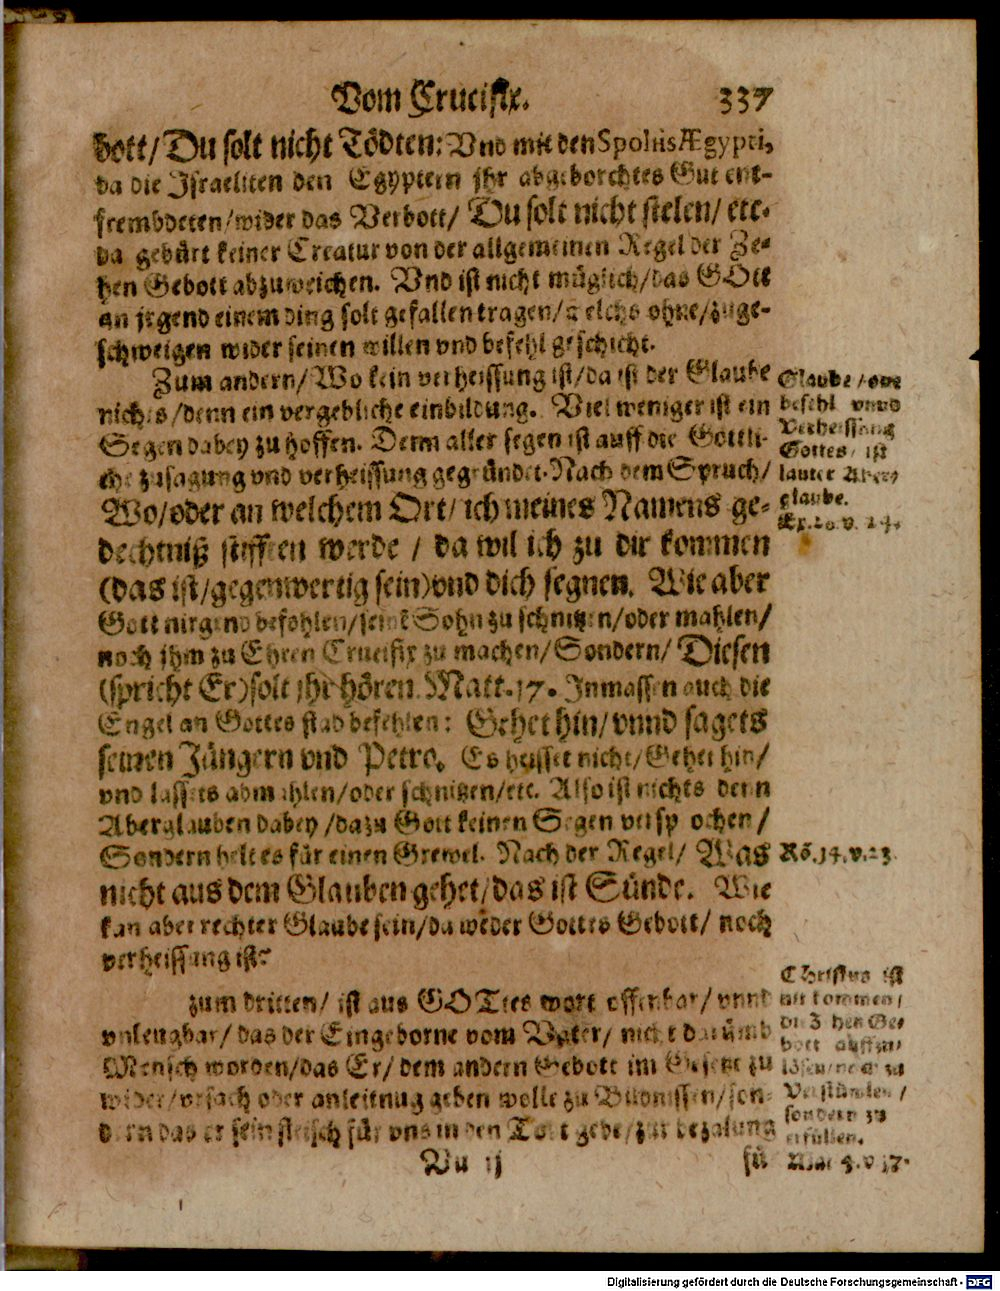 Vom Crucifix. 337
bott/Du solt nicht Tödten: Vnd mit den Spoliis Ægypti,
da die Israeliten den Egyptern jhr abgeborchtes Gut ent-
frembdeten/wider das Verbott/ Du solt nicht stelen/ etc.
da gebürt keiner Creatur von der allgemeinen Regel der Ze-
hen Gebott abzuweichen. Vnd ist nicht müglich/das GOtt
an jrgend einem ding solt gefallen tragen/welchs ohne/zuge-
schweigen wider seinen willen vnd befehl geschicht.
Zum andern/ Wo kein verheissung ist/da ist der Glaube
nichts/denn ein vergebliche einbildung. Viel weniger ist ein
Segen dabey zu hoffen. Denn aller segen ist auff die Göttli-
che zusagung vnd verheissung gegründet. Nach dem Spruch/
Wo/oder an welchem Ort/ ich meines Namens ge-
dechtniß stifften werde / da wil ich zu dir kommen
(das ist/gegenwertig sein)vnd dich segnen. Wie aber
Gott nirgend befohlen/seinē Sohn zu schnitzen/oder mahlen/
noch jhm zu Ehren Crucifix zu machen/Sondern/ Diesen
(spricht Er)solt jhr hören. Matt. 17. Inmassen auch die
Engel an Gottes stad befehlen: Gehet hin/vnnd sagets
seinen Jüngern vnd Petro. Es heisset nicht/Gehet hin/
vnd lassets abmahlen/oder schnitzen/etc. Also ist nichts denn
Aberglauben dabey /dazu Gott keinen Segen versprochen/
Sondern helt es für einen Grewel. Nach der Regel/ Was
nicht aus dem Glauben gehet/das ist Sünde. Wie
kan aber rechter Glaube sein/da weder Gottes Gebott/ noch
verheissung ist?
Zum dritten/ ist aus GOTtes wort offenbar/ vnnd
vnleugbar/ das der Eingeborne vom Vater/ nicht darümb
Mensch worden/das Er/ dem andern Gebott im Gesetze zu
wider/vrsach oder anleitnug geben wolle zu Bildnissen/son-
dern das er sein fleisch für vns in den Tod gebe/zur bezalung
Vu ij für
Glaube / one
befehl vnnd
Verheissung
Gottes/ ist
lauter Aber-
glaube.
Ex. 20. v. 24.
Rö. 14. v. 23.
Christus ist
nit kommen/
die Zehen Ge-
bott auffzu-
lösen/
Verstümlen/
sondern zu
erfüllen.
Mat. 5. v. 17.
Digitalisierung gefördert durch die Deutsche Forschungsgemeinschaft - DFG